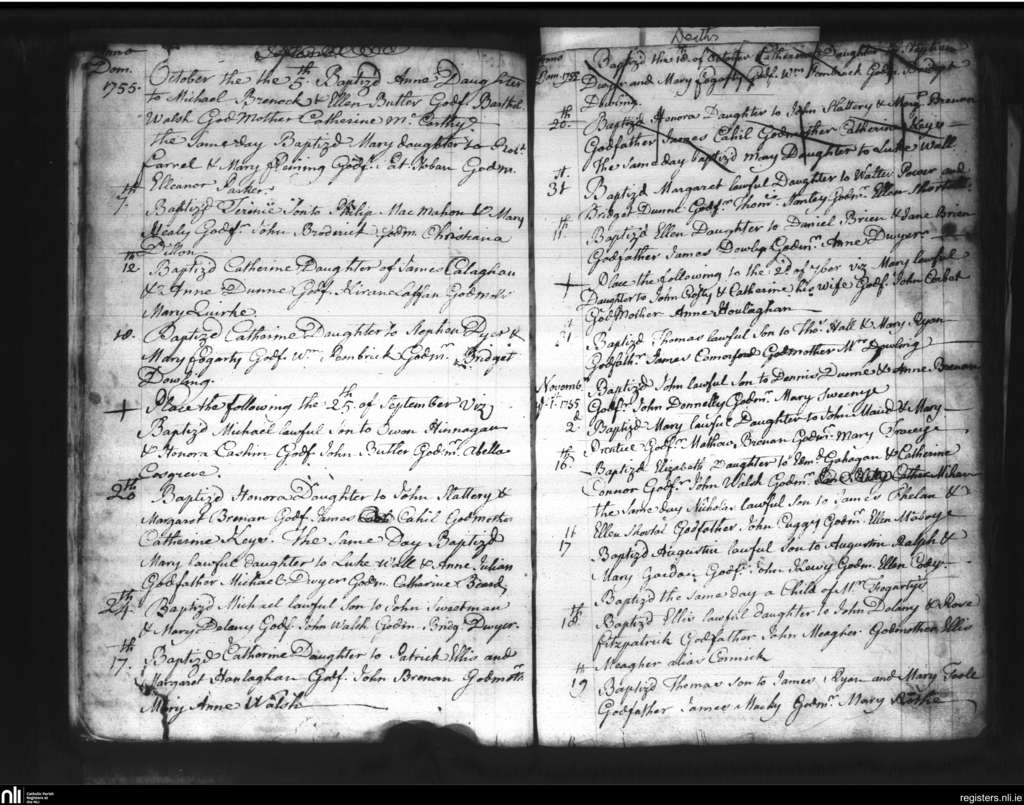 Anno
Dom.
1755.
October the the 5th Baptizd Anne Daughter
to Michael Brenock & Ellen Butler Godf. Barthl.
Walsh God Mother Catherine Mc Carthy
the Same day Baptizd Mary daughter to Robt.
Farrel & Mary Godf. Godm.
Elleanor Parker
th
4. Baptizd Terence Son to Philip Mac Mahon & Mary
Healy Godfr. John Broderick Godm. Christiana
Dillon
th
12 Baptizd Catherine Daughter of James Calaghan
& Anne Dunne Godf. Godmoth
Mary Quirke.
18. Baptizd Catherine Daughter to Stephen Dyer &
Mary Fogarty Godf. Wm. Pembrick Godm. Bridget
Dowling.
+ Place the following the 25th of September viz
Baptizd Michael lawful Son to Hinnagan
& Honora Cashin Godf. John Butler Godmr. Abella
Cosgreve
th
20 Baptizd Honora Daughter to John Slattery &
Margaret Brenan Godf. James Cahil Godmother
Catherine Keys. The Same Day Baptizd
Mary lawful daughter to Luke Wall & Anne Julian
Godfather Michael Dwyer Godm. Catharine
th
24. Baptizd Michael lawful Son to John Sweetman
& Mary Delany Godf. John Walsh Godm. Bridg. Dwyer.
th
17. Baptizd Catherine Daughter to Patrick Ellis and
Margaret Hanlaghan Godf. John Brenan Godmoth
Mary Anne Walsh
Deaths
Anno
Dom. 1755
Baptizd the 18 of October Catherine Daughter to Stephen
Dwyer and Mary Fogarty Godf. Wm. Pembrock Godm. Bridget
Dowling.
th
20. Baptizd Honora Daughter to John Slattery & Margt. Brenan
Godfather James Cahil Godmother Catherine Keys
The Same day baptizd Mary Daughter to Luke Wall
st.
31 Baptizd Margaret lawful Daughter to Walter Power and
Bridget Dunne Godfr. Thoms. Godmr. Ellen
Baptizd Ellen Daughter to Daniel Brien & Jane Brien
Godfather James Godmr. Anne Dwyer
+ Place the following to the 2d of 7ber viz Mary lawful
Daughter to John & Catherine his wife Godf. John Corbet
God Mother Anne Houlaghan
31 Baptizd Thomas lawful Son to Thos. Hall & Mary Ryan
Godfathr. James Comerford Godmother Mrs Dowling
Novembr.
1755 Baptizd John lawful Son to Dennis Dunne & Anne Brenan
Godfr. John Donnelly Godmr. Mary Sweenye
2. Baptizd Mary lawful Daughter to John Maud & Mary
Prentice Godfr. Mathew Brenan Godmr. Mary
th
16. Baptizd Elizabeth Daughter to Edmd. Gahagan & Catherine
Connor Godfr. John Walsh Godmr.
the Same day Nicholas lawful Son to James Phelan &
Ellen Godfather John Cuggy Godmr. Ellen
17 Baptizd Augustin lawful Son to Augustin Ralph &
Mary Gordan Godfr. John Godm. Ellen Cody.
Baptizd the Same day a Child of Mr. Fogartys
th
18. Baptizd Ellis lawful daughter to John Delany & Rose
Fitzpatrick Godfather John Meagher Godmother Ellis
Meagher alias Cormick
19 Baptizd Thomas Son to James Ryan and Mary
Godfather James Macky Godmr. Mary Rothe
nli Catholic Parish
Registers at
the NLI
registers.nli.ie